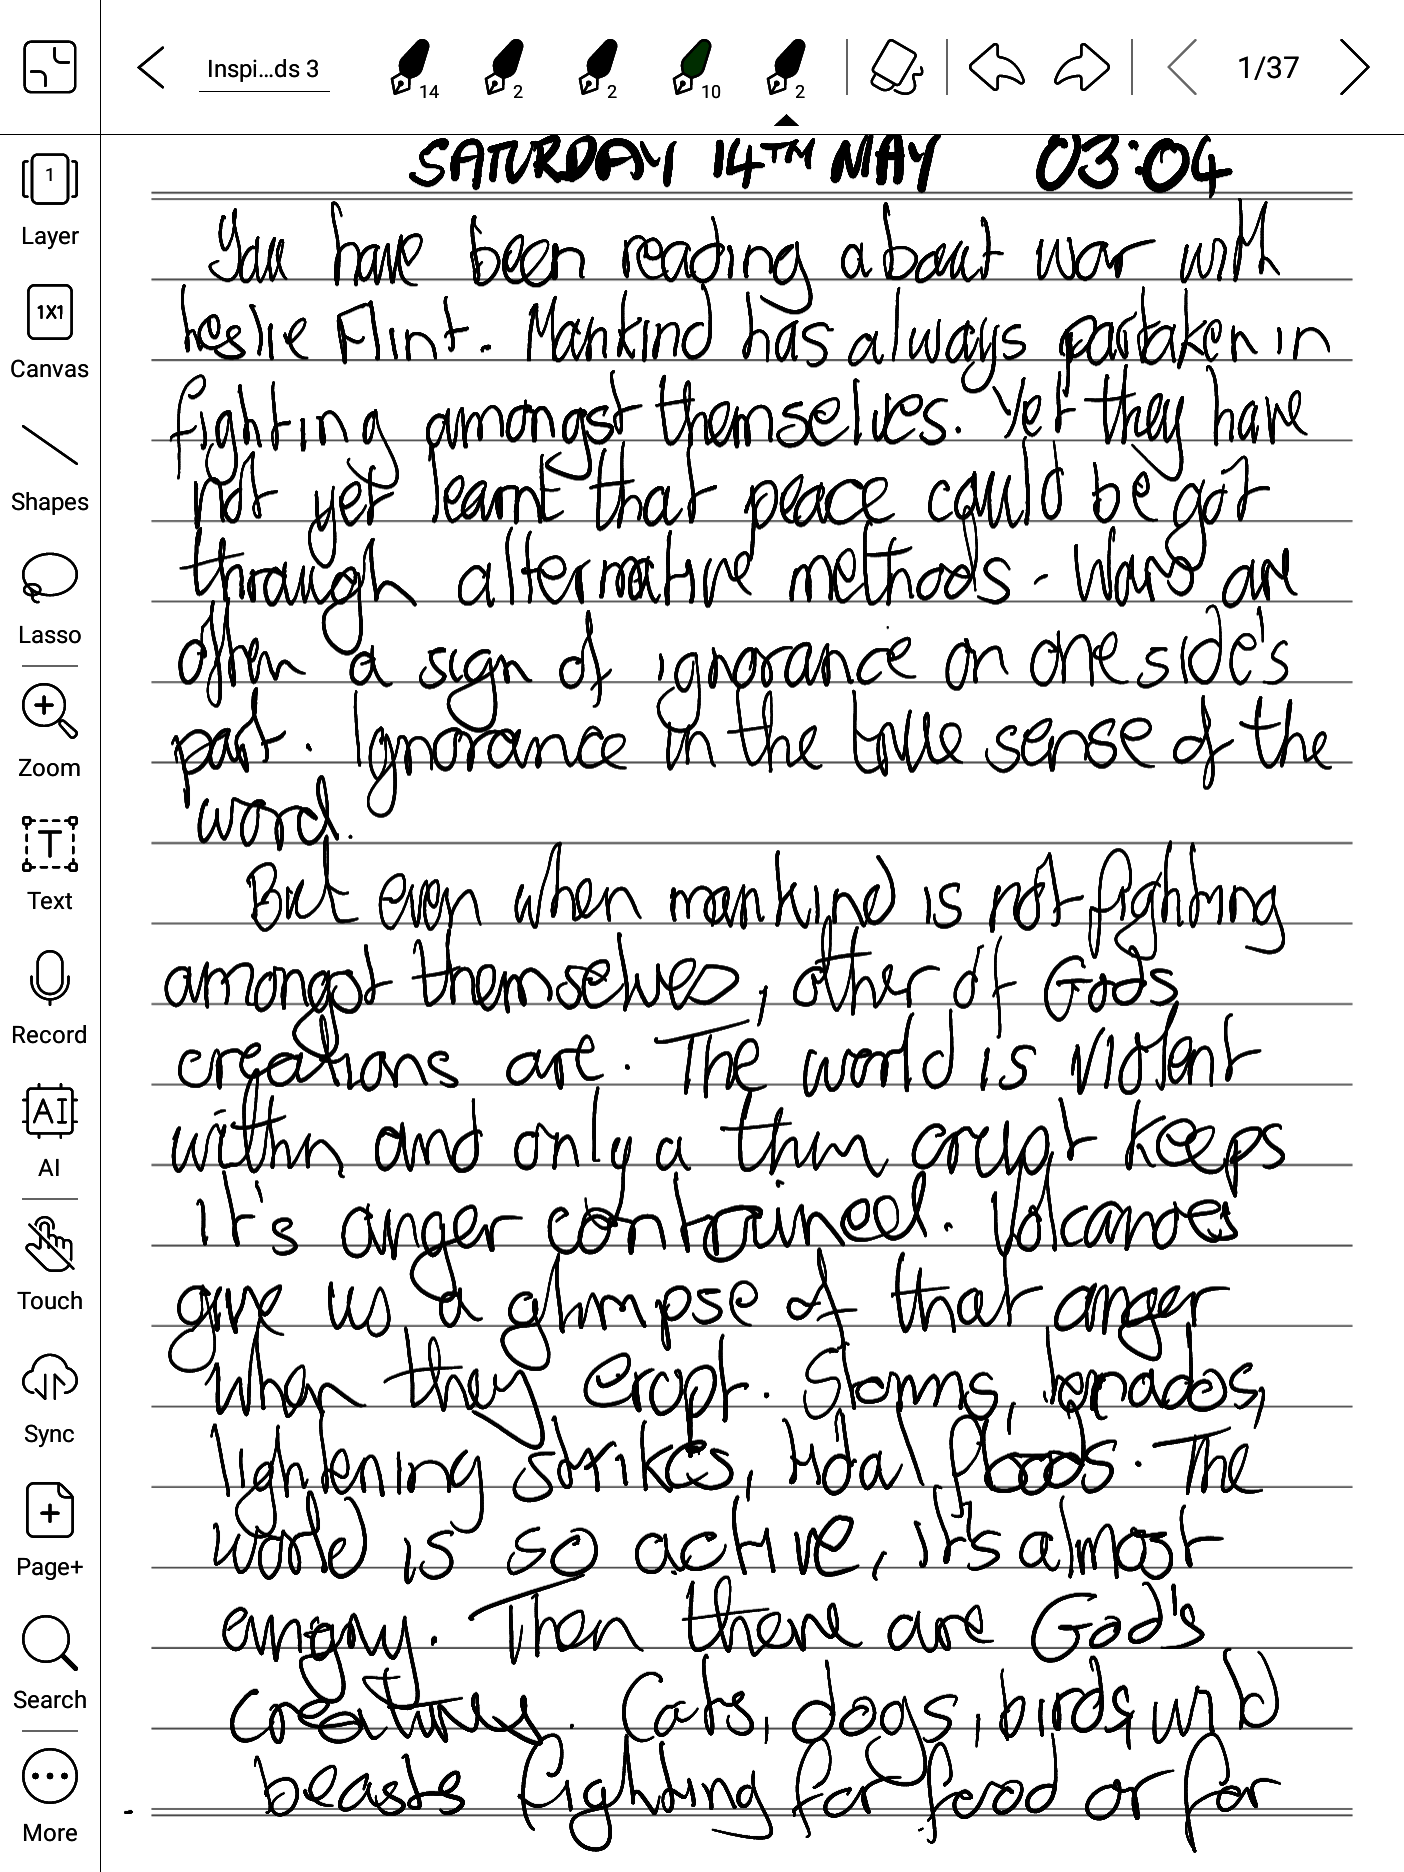 Inspi...ds 3
14
2
2
10
2
1/37
1
Layer
1X1
Canvas
Shapes
Lasso
Zoom
T
Text
Record
AI
AI
Touch
Sync
Page+
Search
More
SATURDAY 14TH MAY 03:04
You have been reading about war with
Leslie Flint. Mankind has always partaken in
fighting amongst themselves. Yet they have
not yet learnt that peace could be got
through alternative methods. Wars are
often a sign of ignorance on one side's
part. Ignorance in the true sense of the
word.
But even when mankind is not fighting
amongst themselves, other of Gods
creations are. The world is violent
within and only a thin crust keeps
it's anger contained. Volcanoes
give us a glimpse of that anger
when they erupt. Storms, tornados,
lightening strikes, tidal floods. The
world is so active, it's almost
angry. Then there are God's
creatures. Cats, dogs, birds, wild
beasts fighting for food or for